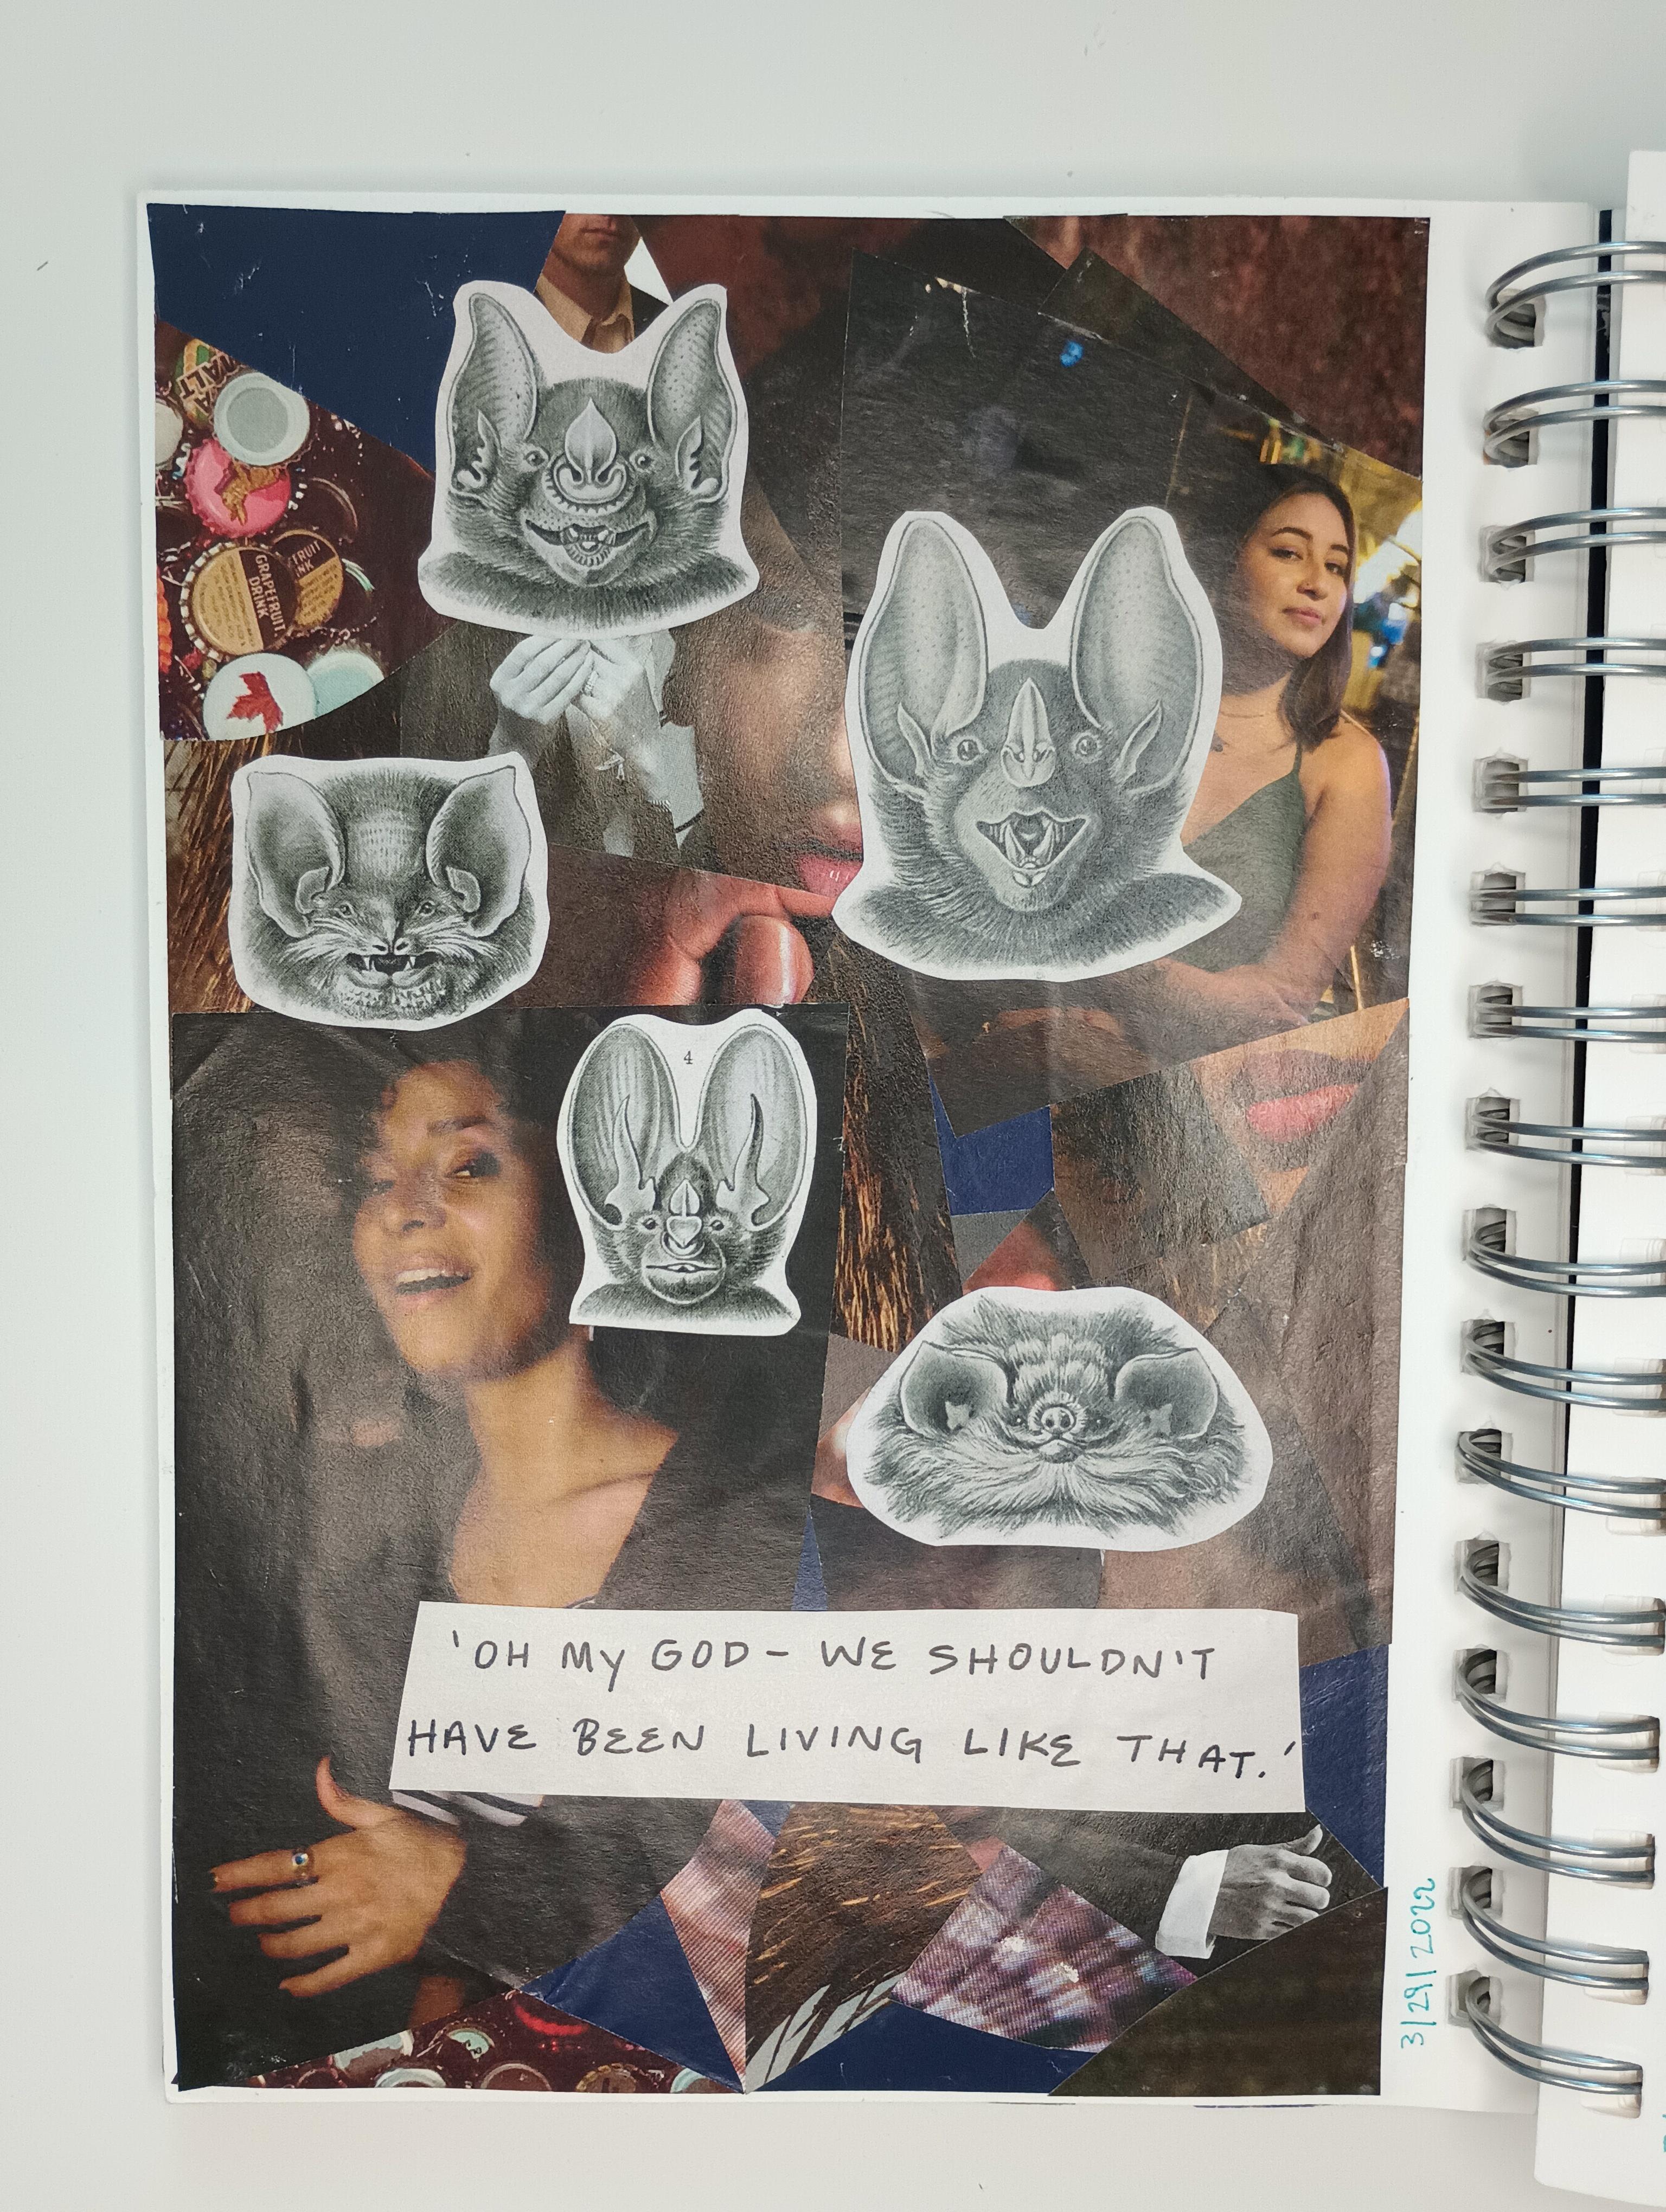 MALT
GRAPEFRUIT
DRINK
FRUIT
INK
4
'OH MY GOD - WE SHOULDN'T
HAVE BEEN LIVING LIKE THAT.'
3/29/2022